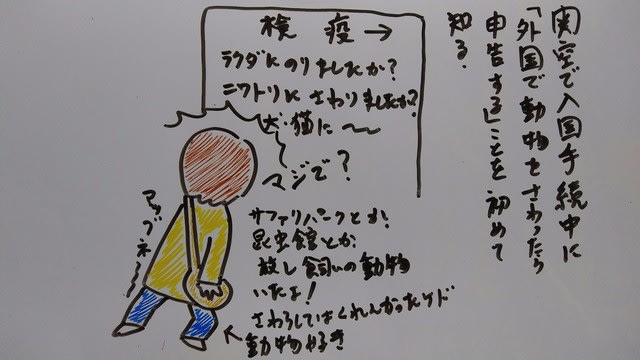 関空で入国手続中に
「外国で動物をさわったら
申告する」ことを初めて
知る.
検 疫 →
ラクダにのりましたか?
ニワトリにさわりましたか?
犬・猫に〜
マジで?
サファリパークとか!
昆虫館とか
放し飼いの動物
いたよ!
さわらしてはくれんかったケド
動物好き
アッブネー